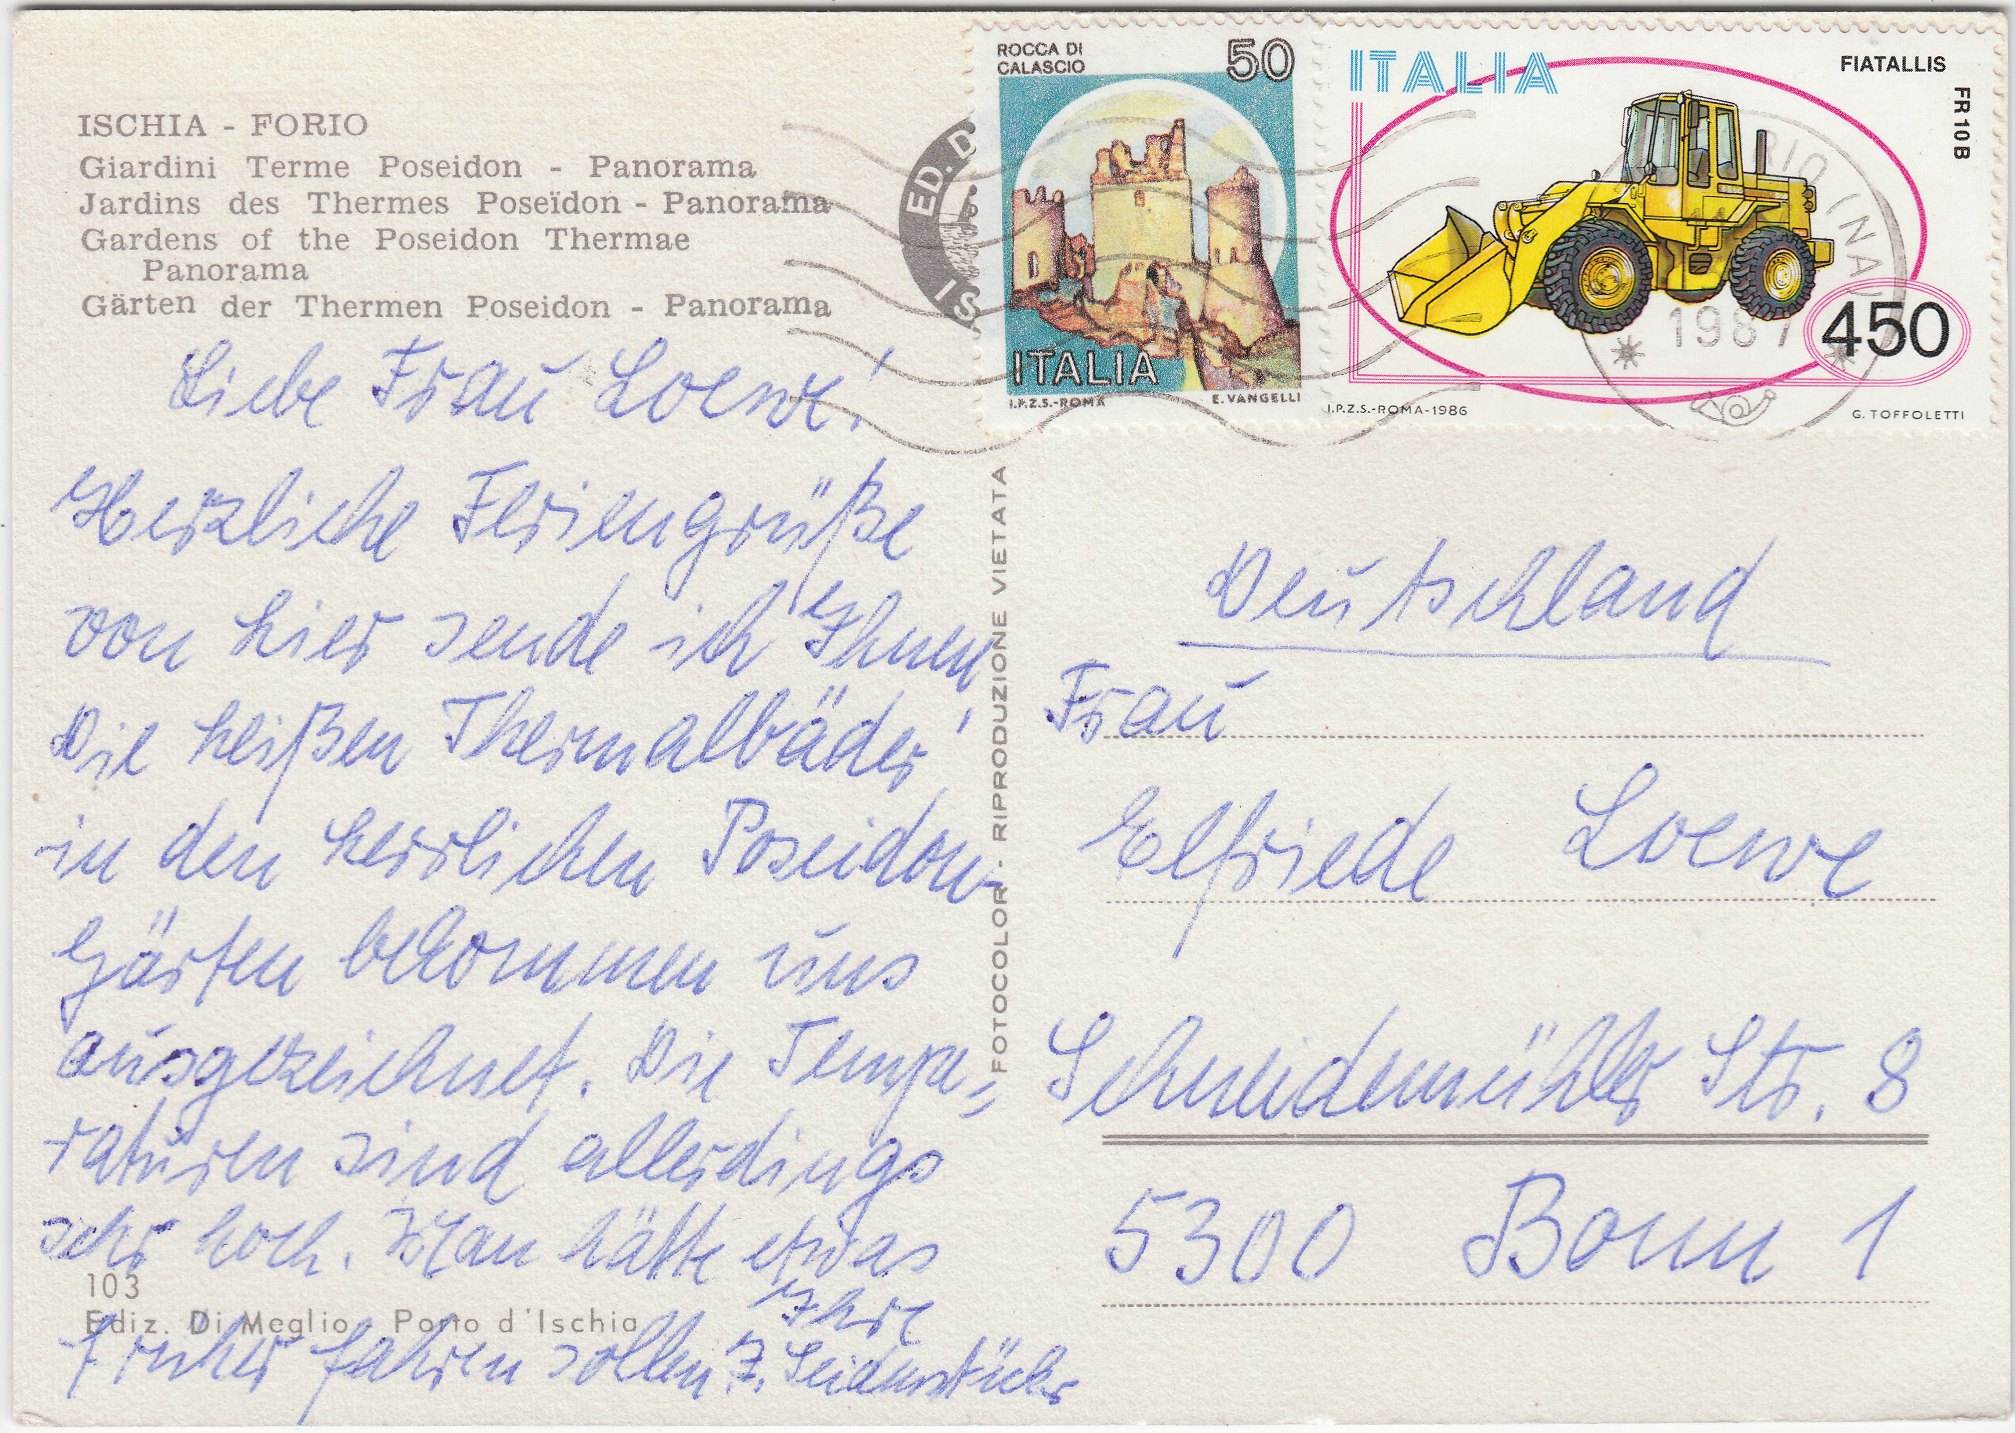 ISCHIA - FORIO
Giardini Terme Poseidon - Panorama
Jardins des Thermes Poseïdon - Panorama
Gardens of the Poseidon Thermae
Panorama
Gärten der Thermen Poseidon - Panorama
Liebe Frau Loewe!
Herzliche Feriengrüße
von hier sende ich Ihnen
Die heißen Thermalbäder
in den herrlichen Poseidon-
Gärten bekommen uns
ausgezeichnet. Die Tempe=
raturen sind allerdings
sehr hoch. Man hätte etwas
früher fahren sollen
Ihre
I. Seidenstücker
103
Ediz. Di Meglio - Porto d'Ischia
FOTOCOLOR - RIPRODUZIONE VIETATA
ED. D
IS
ROCCA DI
CALASCIO
50
ITALIA
I.P.Z.S.-ROMA
E. VANGELLI
ITALIA
FIATALLIS
FR 10 B
450
I.P.Z.S.-ROMA-1986
G. TOFFOLETTI
1987
Deutschland
Frau
Elfriede Loewe
Schneidemühler Str. 8
5300 Bonn 1